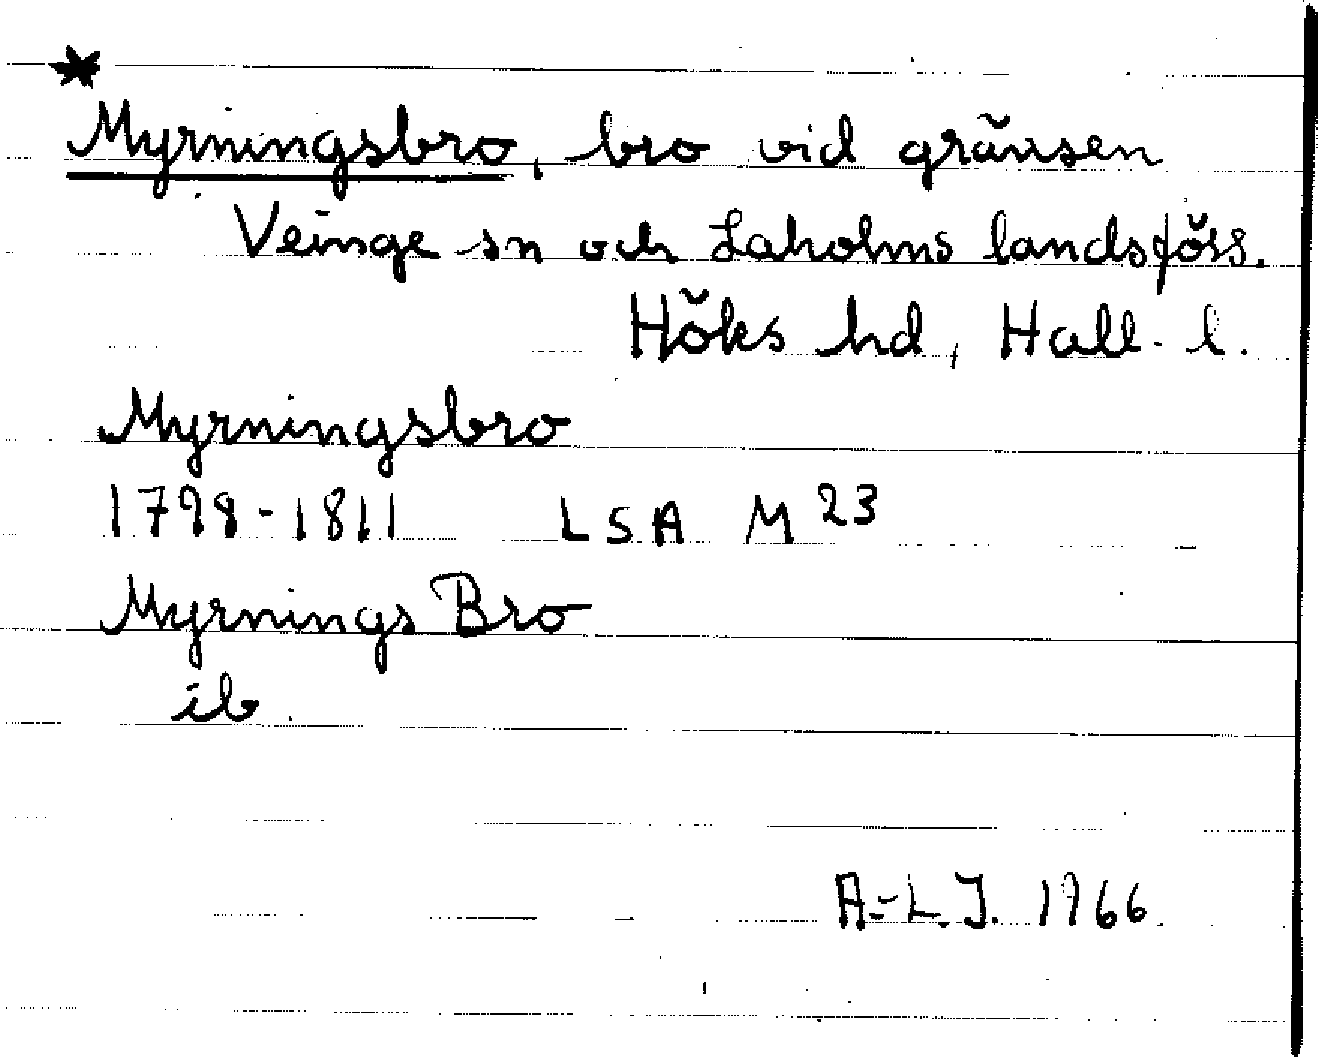 *
Myrningsbro, bro vid gränsen
Veinge sn och Laholms landsförs.
Höks hd, Hall. l.
Myrningsbro
1798-1811 LSA M 23
Myrnings Bro
ib
A.-L. J. 1966